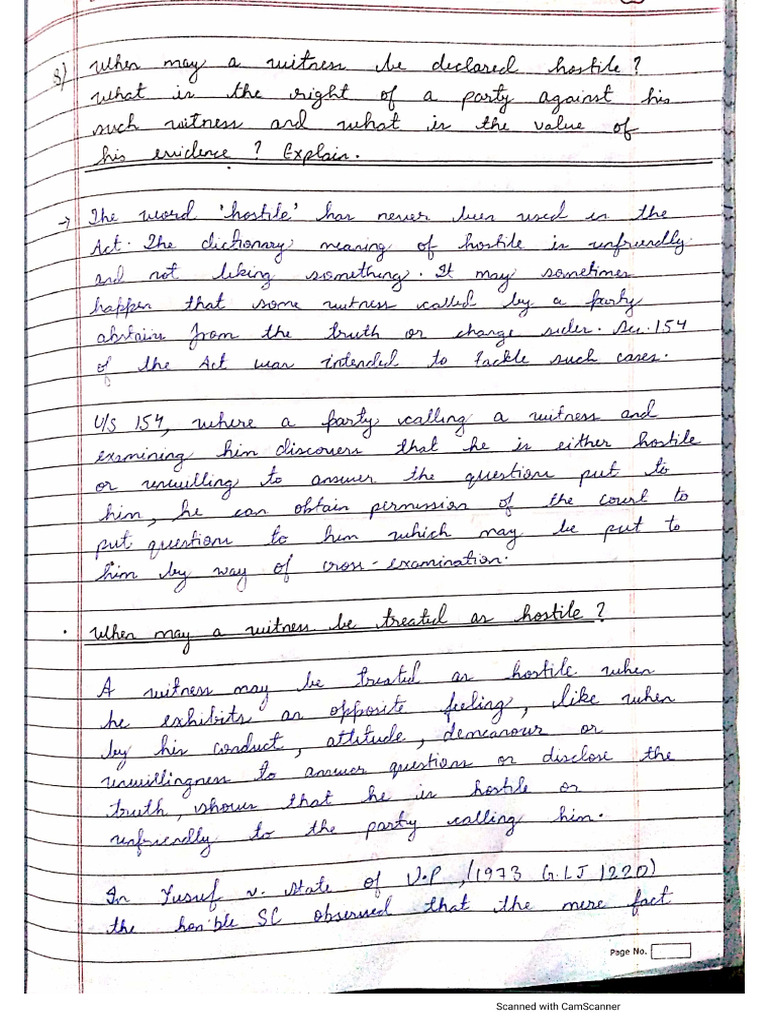 8) When may a witness be declared hostile?
What is the right of a party against his
such witness and what is the value of
his evidence? Explain.
→ The word 'hostile' has never been used in the
Act. The dictionary meaning of hostile is unfriendly
and not liking something. It may sometimes
happen that some witness called by a party
abstain from the truth or change sides. Sec. 154
of the Act was intended to tackle such cases.
U/S 154, where a party calling a witness and
examining him discovers that he is either hostile
or unwilling to answer the questions put to
him, he can obtain permission of the court to
put questions to him which may be put to
him by way of cross-examination.
• When may a witness be treated as hostile?
A witness may be treated as hostile when
he exhibits an opposite feeling, like when
by his conduct, attitude, demeanour or
unwillingness to answer questions or disclose the
truth, shows that he is hostile or
unfriendly to the party calling him.
In Yusuf v. State of U.P, (1973 G.LJ 1220)
the hon'ble SC observed that the mere fact
Page No.
Scanned with CamScanner